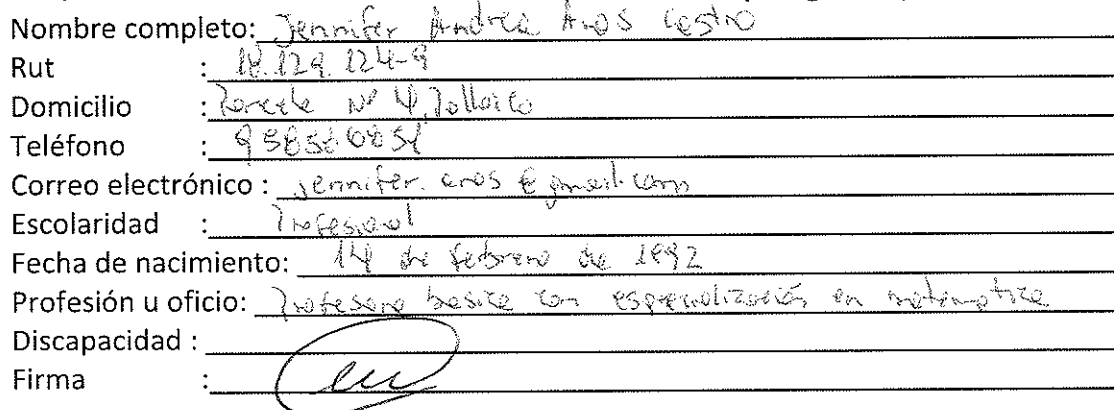 Nombre completo: Jennifer Andrea Aros Castro
Rut : 18.129.124-9
Domicilio : Parcela Nº 4,
Teléfono :
Correo electrónico : jennifer.aros@gmail.com
Escolaridad : Profesional
Fecha de nacimiento: 14 de febrero de 1992
Profesión u oficio: Profesora basica con especialización en matematica
Discapacidad :
Firma :